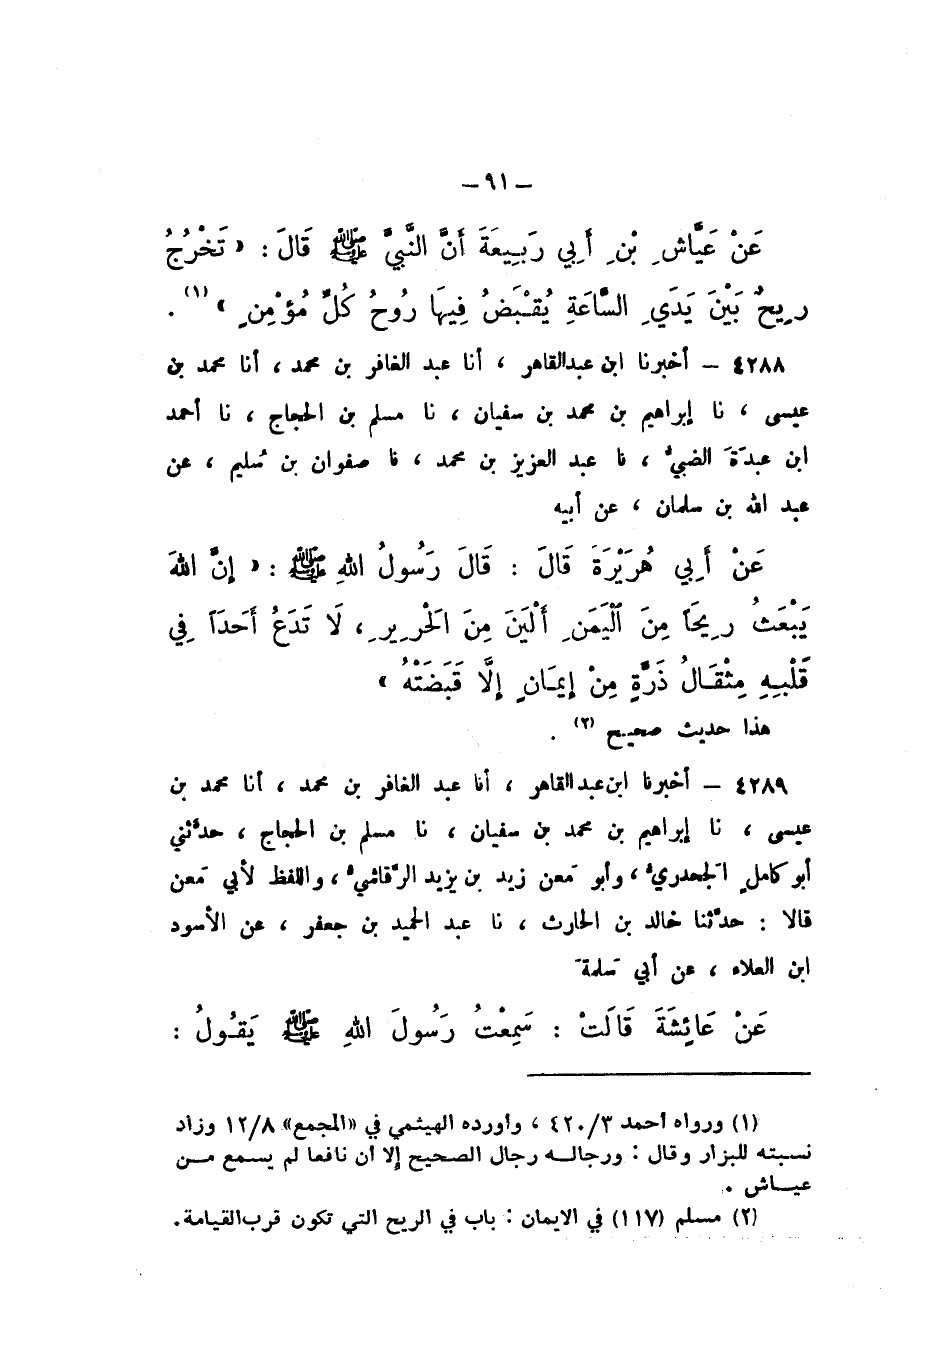 – ٩١ –
عَنْ عَيَّاشِ بْنِ أَبِي رَبِيعَةَ أَنَّ النَّبِيَّ ﷺ قَالَ : « تَخْرُجُ
رِيحٌ بَيْنَ يَدَيِ السَّاعَةِ يُقْبَضُ فِيهَا رُوحُ كُلِّ مُؤْمِنٍ » (١) .
٤٢٨٨ – أخبرنا ابن عبدالقاهر ، أنا عبد الغافر بن محمد ، أنا محمد بن
عيسى ، نا إبراهيم بن محمد بن سفيان ، نا مسلم بن الحجاج ، نا أحمد
ابن عبدَةَ الضبيُّ ، نا عبد العزيز بن محمد ، نا صفوان بن سُليم ، عن
عبد الله بن سلمان ، عن أبيه
عَنْ أَبِي هُرَيْرَةَ قَالَ : قَالَ رَسُولُ اللهِ ﷺ : « إِنَّ اللهَ
يَبْعَثُ رِيحَاً مِنَ ٱلْيَمَنِ أَلْيَنَ مِنَ الْحَرِيرِ ، لَا تَدَعُ أَحَدَاً فِي
قَلْبِهِ مِثْقَالُ ذَرَّةٍ مِنْ إِيمَانٍ إِلَّا قَبَضَتْهُ »
هذا حديث صحيح (٢) .
٤٢٨٩ – أخبرنا ابن عبدالقاهر ، أنا عبد الغافر بن محمد ، أنا محمد بن
عيسى ، نا إبراهيم بن محمد بن سفيان ، نا مسلم بن الحجاج ، حدثني
أبو كاملٍ الجحدريُّ ، وأبو مَعن زيد بن يزيد الرَّقاشيُّ ، واللفظ لأبي مَعن
قالا : حدَّثنا خالد بن الحارث ، نا عبد الحميد بن جعفر ، عن الأسود
ابن العلاء ، عن أبي سَلمةَ
عَنْ عَائِشَةَ قَالَتْ : سَمِعْتُ رَسُولَ اللهِ ﷺ يَقُولُ :
(١) ورواه أحمد ٤٢٠/٣ ، وأورده الهيثمي في «المجمع» ١٢/٨ وزاد
نسبته للبزار وقال : ورجاله رجال الصحيح إلا أن نافعا لم يسمع من
عياش .
(٢) مسلم (١١٧) في الايمان : باب في الريح التي تكون قرب القيامة .